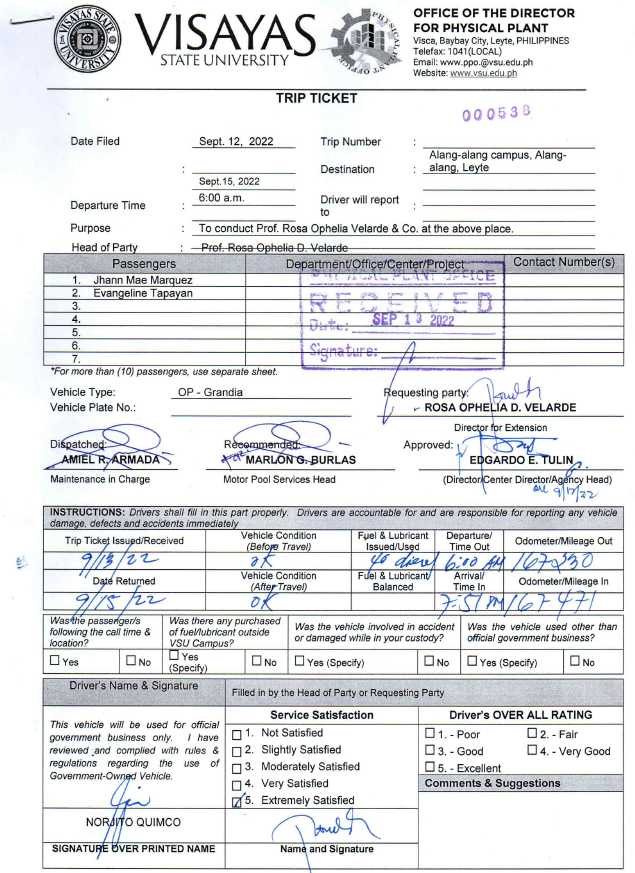 VISAYAS STATE UNIVERSITY
VISAYAS
STATE UNIVERSITY
PHYSICAL PLANT OFFICE
OFFICE OF THE DIRECTOR
FOR PHYSICAL PLANT
Visca, Baybay City, Leyte, PHILIPPINES
Telefax: 1041(LOCAL)
Email: www.ppo.@vsu.edu.ph
Website: www.vsu.edu.ph
TRIP TICKET
000538
Date Filed Sept. 12, 2022 Trip Number :
: Destination : Alang-alang campus, Alang-
alang, Leyte
Sept.15, 2022
Departure Time : 6:00 a.m. Driver will report
to :
Purpose : To conduct Prof. Rosa Ophelia Velarde & Co. at the above place.
Head of Party : Prof. Rosa Ophelia D. Velarde
Passengers Department/Office/Center/Project Contact Number(s)
1. Jhann Mae Marquez
2. Evangeline Tapayan
3.
4.
5.
6.
7.
PHYSICAL PLANT OFFICE
RECEIVED
Date: SEP 13 2022
Signature:
*For more than (10) passengers, use separate sheet.
Vehicle Type: OP - Grandia Requesting party:
Vehicle Plate No.: ROSA OPHELIA D. VELARDE
Director for Extension
Dispatched: Recommended: Approved:
AMIEL R. ARMADA MARLON G. BURLAS EDGARDO E. TULIN
Maintenance in Charge Motor Pool Services Head (Director/Center Director/Agency Head)
9/17/22
INSTRUCTIONS: Drivers shall fill in this part properly. Drivers are accountable for and are responsible for reporting any vehicle
damage, defects and accidents immediately
Trip Ticket Issued/Received Vehicle Condition (Before Travel) Fuel & Lubricant Issued/Used Departure/ Time Out Odometer/Mileage Out
9/13/22 OK 40 diesel 6:00 AM 167230
Date Returned Vehicle Condition (After Travel) Fuel & Lubricant Balanced Arrival/ Time In Odometer/Mileage In
9/15/22 OK 7:51 PM 167471
Was the passenger/s
following the call time &
location?
Was there any purchased
of fuel/lubricant outside
VSU Campus?
Was the vehicle involved in accident
or damaged while in your custody?
Was the vehicle used other than
official government business?
☐ Yes ☐ No ☐ Yes (Specify) ☐ No ☐ Yes (Specify) ☐ No ☐ Yes (Specify) ☐ No
Driver's Name & Signature Filled in by the Head of Party or Requesting Party
This vehicle will be used for official
government business only. I have
reviewed and complied with rules &
regulations regarding the use of
Government-Owned Vehicle.
NORJITO QUIMCO
SIGNATURE OVER PRINTED NAME
Service Satisfaction
☐ 1. Not Satisfied
☐ 2. Slightly Satisfied
☐ 3. Moderately Satisfied
☐ 4. Very Satisfied
☑ 5. Extremely Satisfied
Name and Signature
Driver's OVER ALL RATING
☐ 1. - Poor ☐ 2. - Fair
☐ 3. - Good ☐ 4. - Very Good
☐ 5. - Excellent
Comments & Suggestions